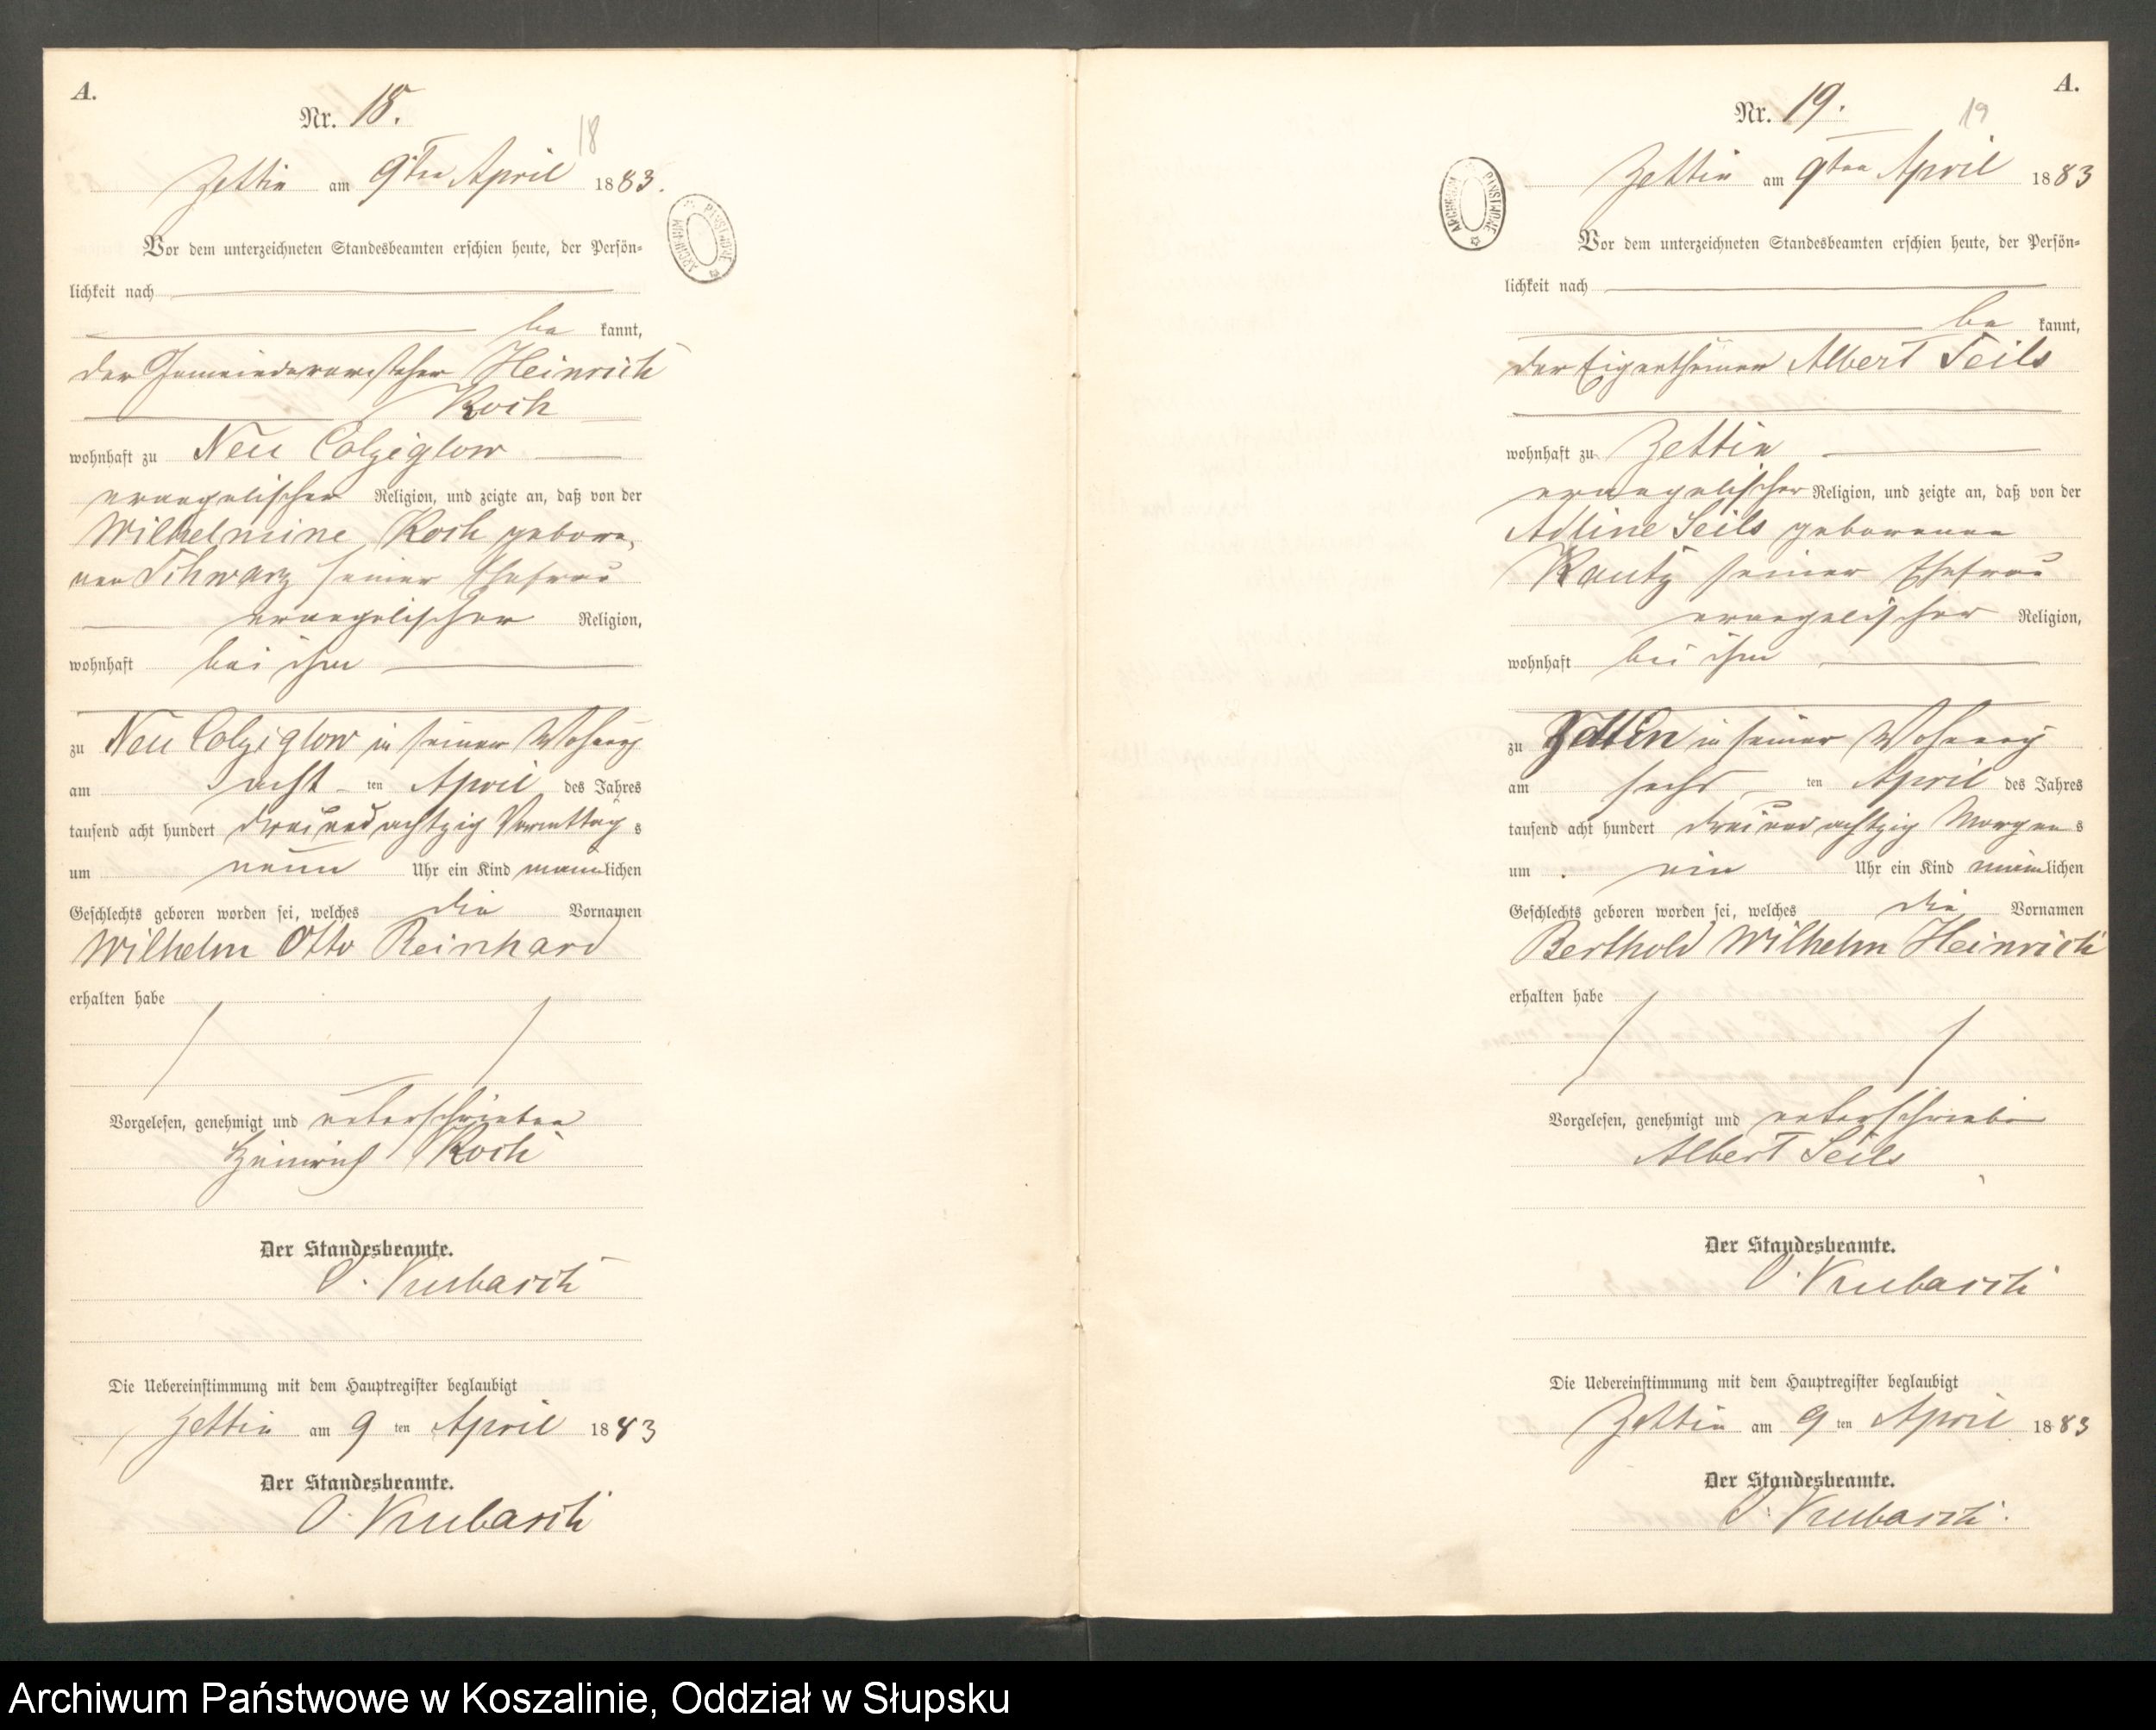 A.
Nr. 18.
18
Zettin am 9ten April 1883.
Vor dem unterzeichneten Standesbeamten erschien heute, der Persön=
lichkeit nach
be kannt,
der Gemeindevorsteher Heinrich
Koch
wohnhaft zu Neu Colziglow
evangelischer Religion, und zeigte an, daß von der
Wilhelmine Koch gebore,
nen Schwarz seiner Ehefrau
evangelischer Religion,
wohnhaft bei ihm
zu Neu Colziglow in seiner Wohnung
am acht ten April des Jahres
tausend acht hundert dreiundachtzig Vormittags
um neun Uhr ein Kind männlichen
Geschlechts geboren worden sei, welches die Vornamen
Wilhelm Otto Reinhard
erhalten habe
Vorgelesen, genehmigt und unterschrieben
Heinrich Koch
Der Standesbeamte.
O. Krubasch
Die Uebereinstimmung mit dem Hauptregister beglaubigt
Zettin am 9 ten April 1883
Der Standesbeamte.
O. Krubasch
ARCHIWUM PAŃSTWOWE
A.
Nr. 19.
19
Zettin am 9ten April 1883
Vor dem unterzeichneten Standesbeamten erschien heute, der Persön=
lichkeit nach
be kannt,
der Eigenthümer Albert Seils
wohnhaft zu Zettin
evangelischer Religion, und zeigte an, daß von der
Adline Seils geborenen
Kautz seiner Ehefrau
evangelischer Religion,
wohnhaft bei ihm
zu Zettin in seiner Wohnung
am sechs ten April des Jahres
tausend acht hundert dreiundachtzig Morgens
um ein Uhr ein Kind männlichen
Geschlechts geboren worden sei, welches die Vornamen
Berthold Wilhelm Heinrich
erhalten habe
Vorgelesen, genehmigt und unterschrieben
Albert Seils
Der Standesbeamte.
O. Krubasch
Die Uebereinstimmung mit dem Hauptregister beglaubigt
Zettin am 9 ten April 1883
Der Standesbeamte.
O. Krubasch.
ARCHIWUM PAŃSTWOWE
Archiwum Państwowe w Koszalinie, Oddział w Słupsku